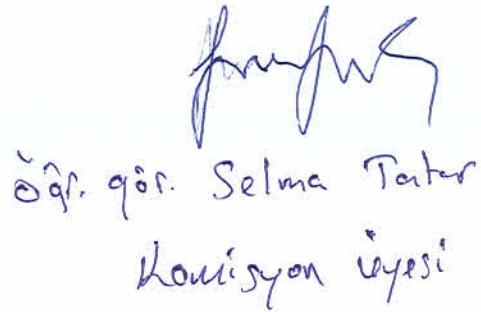 Öğr. gör. Selma Tatar
Komisyon üyesi